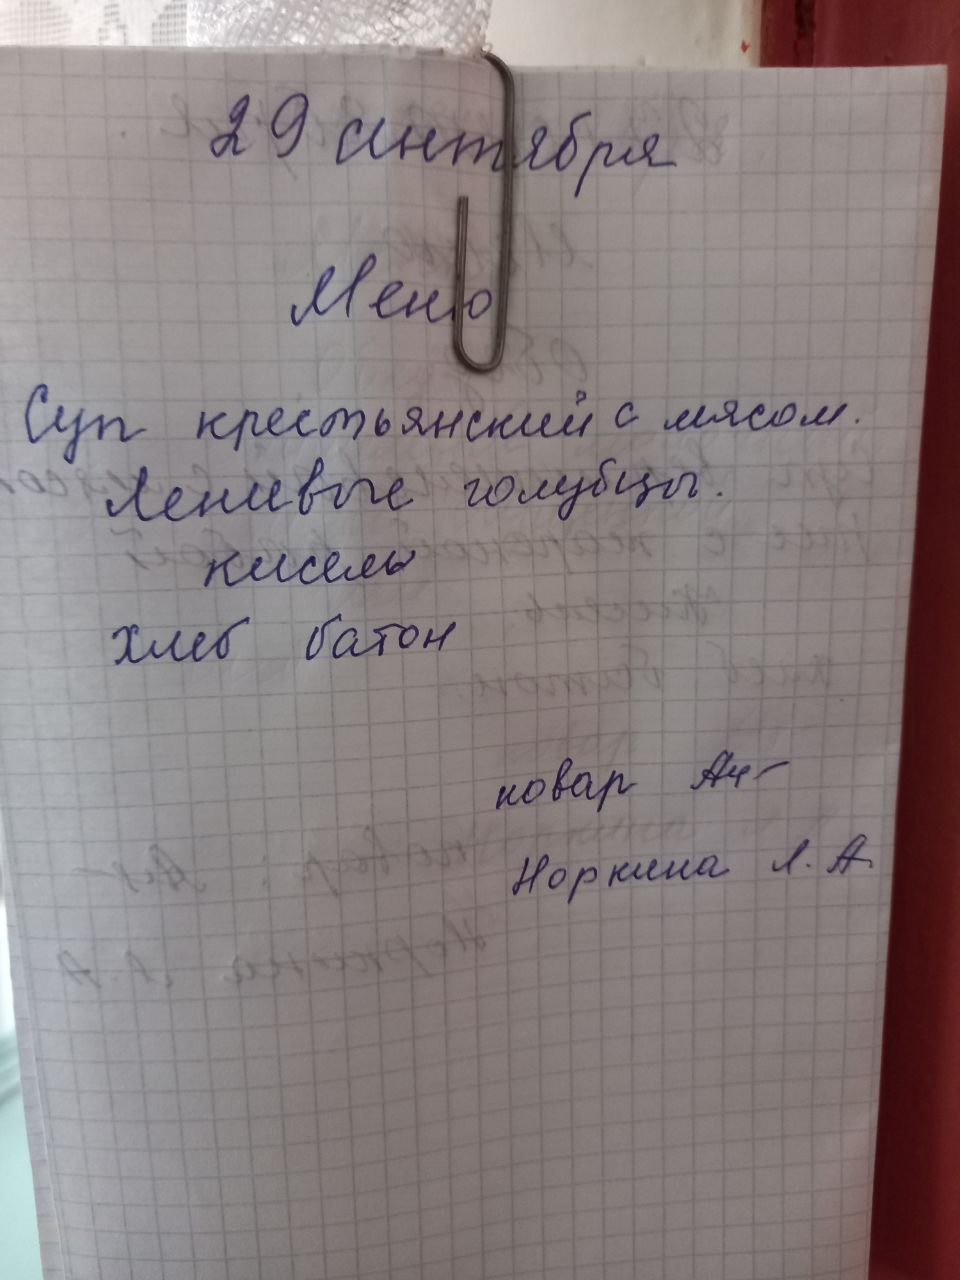 29 сентября
Меню
Суп крестьянский с мясом.
Ленивые голубцы.
кисель
хлеб батон
повар
Норкина Л.А.